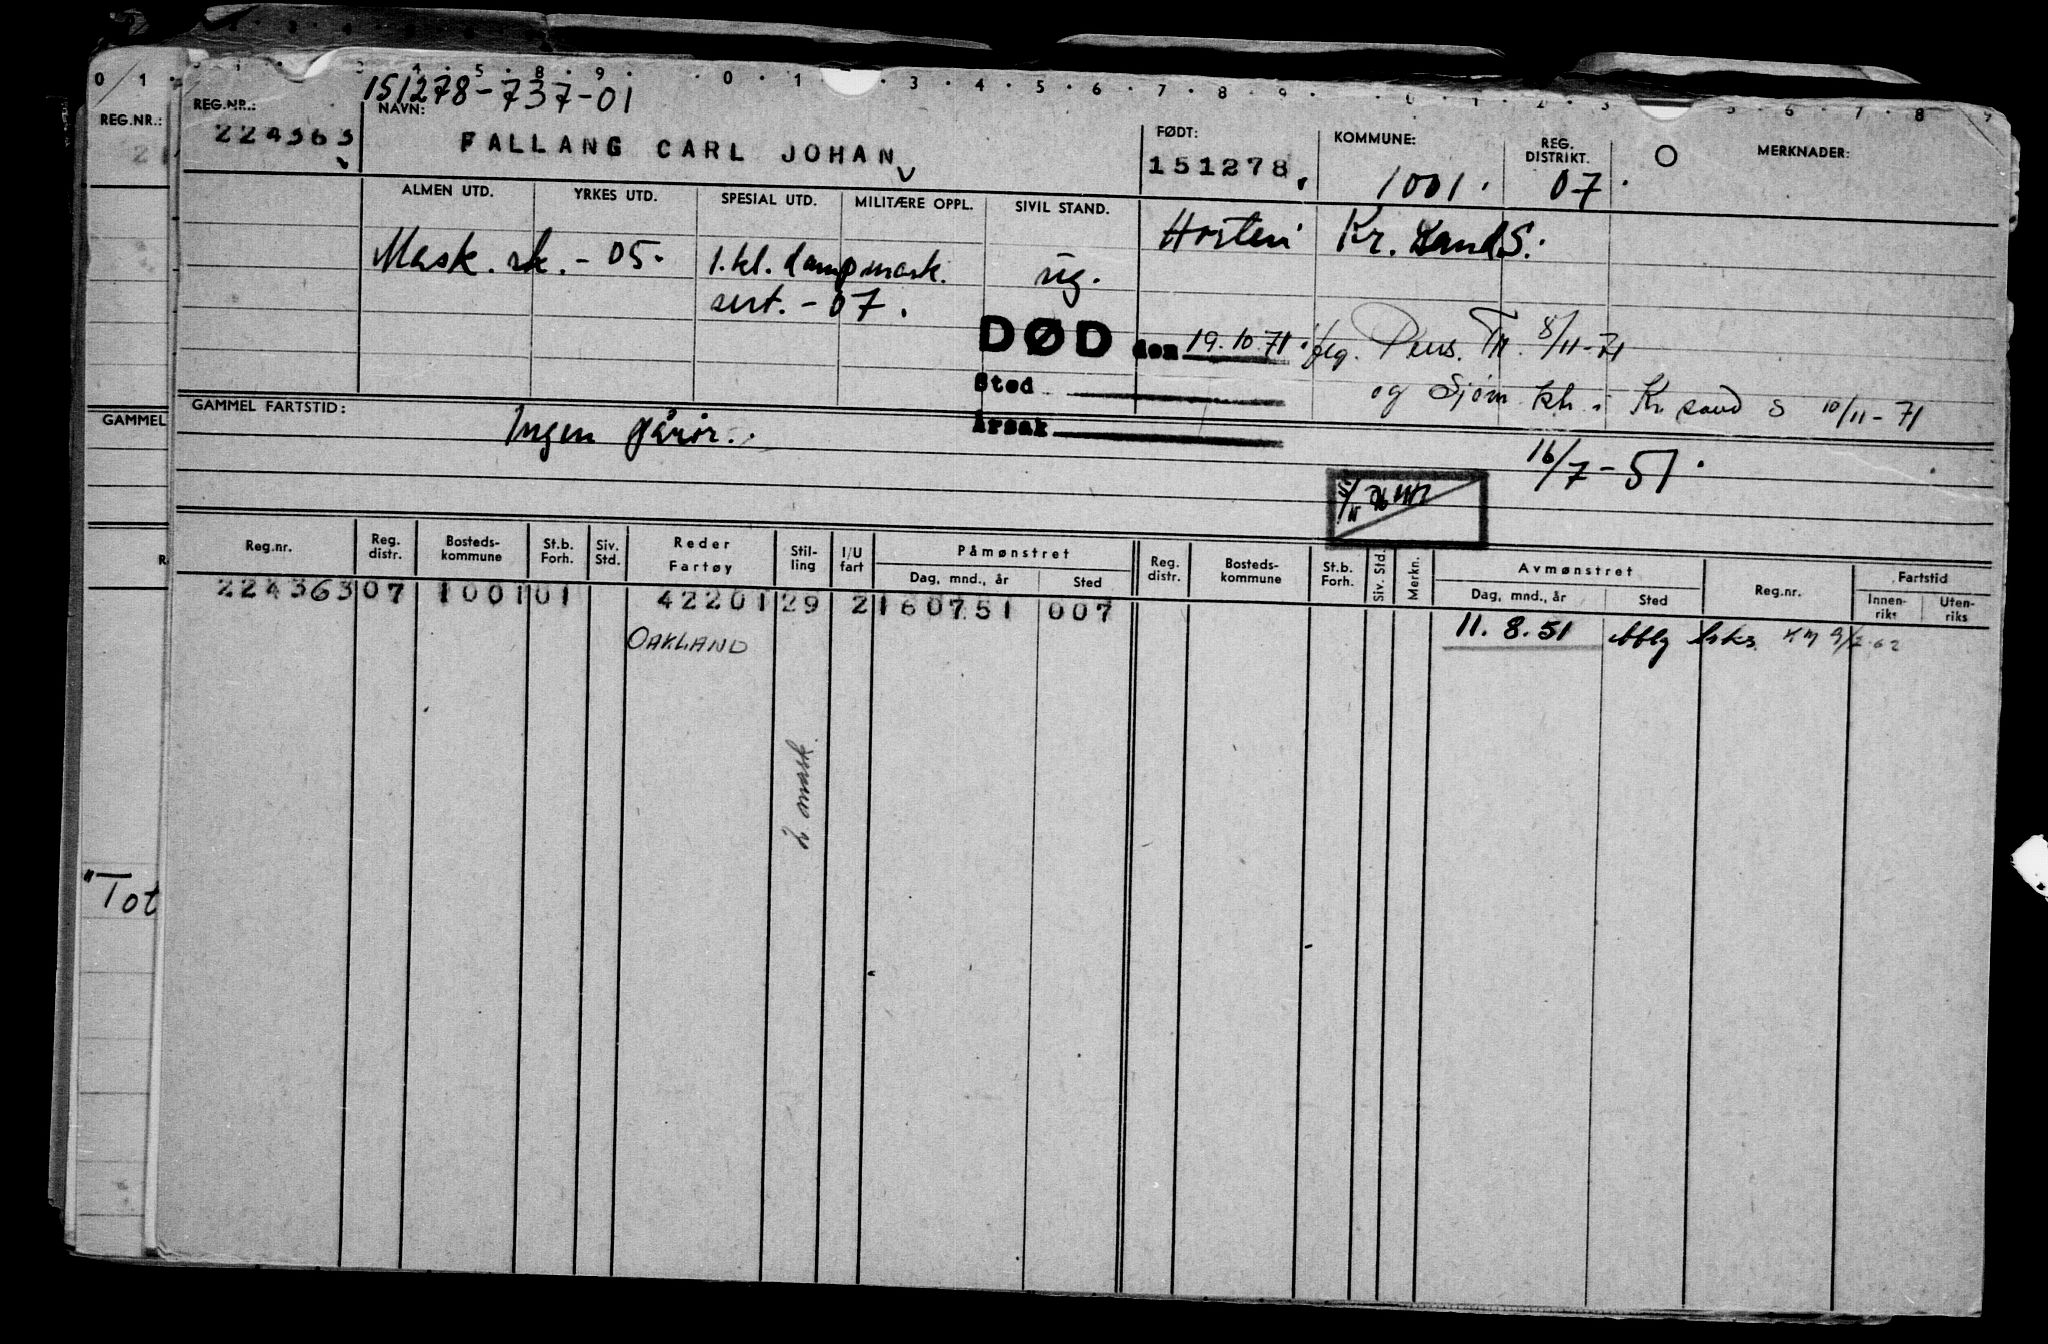 0 1
3 4 5 8 9 0 1 3 4 5 6 7 8 9 0 1 2 3 5 6 7 8 9
151278-737-01
REG.NR.: REG.NR.: NAVN: FØDT: KOMMUNE: REG. DISTRIKT. MERKNADER:
224363 FALLANG CARL JOHAN 151278. 1001. 07.
ALMEN UTD. YRKES UTD. SPESIAL UTD. MILITÆRE OPPL. SIVIL STAND.
Horten Kr. Sand S.
Mask. sk. - 05. 1. kl. dampmask. ug.
sert. - 07.
DØD den 19.10.71. Pens. Tr. 8/11-71
Sted og Sjøm. ktr. i Kr sand S 10/11-71
Årsak
GAMMEL GAMMEL FARTSTID:
Ingen
16/7-51.
Reg.nr. Reg. distr. Bosteds-kommune St.b. Forh. Siv. Std. Reder Fartøy Stil-ling I/U fart Påmønstret Reg. distr. Bosteds-kommune St.b. Forh. Siv. Std. Merkn. Avmønstret Reg.nr. Fartstid
Dag, mnd., år Sted Dag, mnd., år Sted Innen-riks Uten-riks
224363 07 1001 01 42201 29 2 160751 007
OAKLAND 11.8.51
2 mask.
"Tot